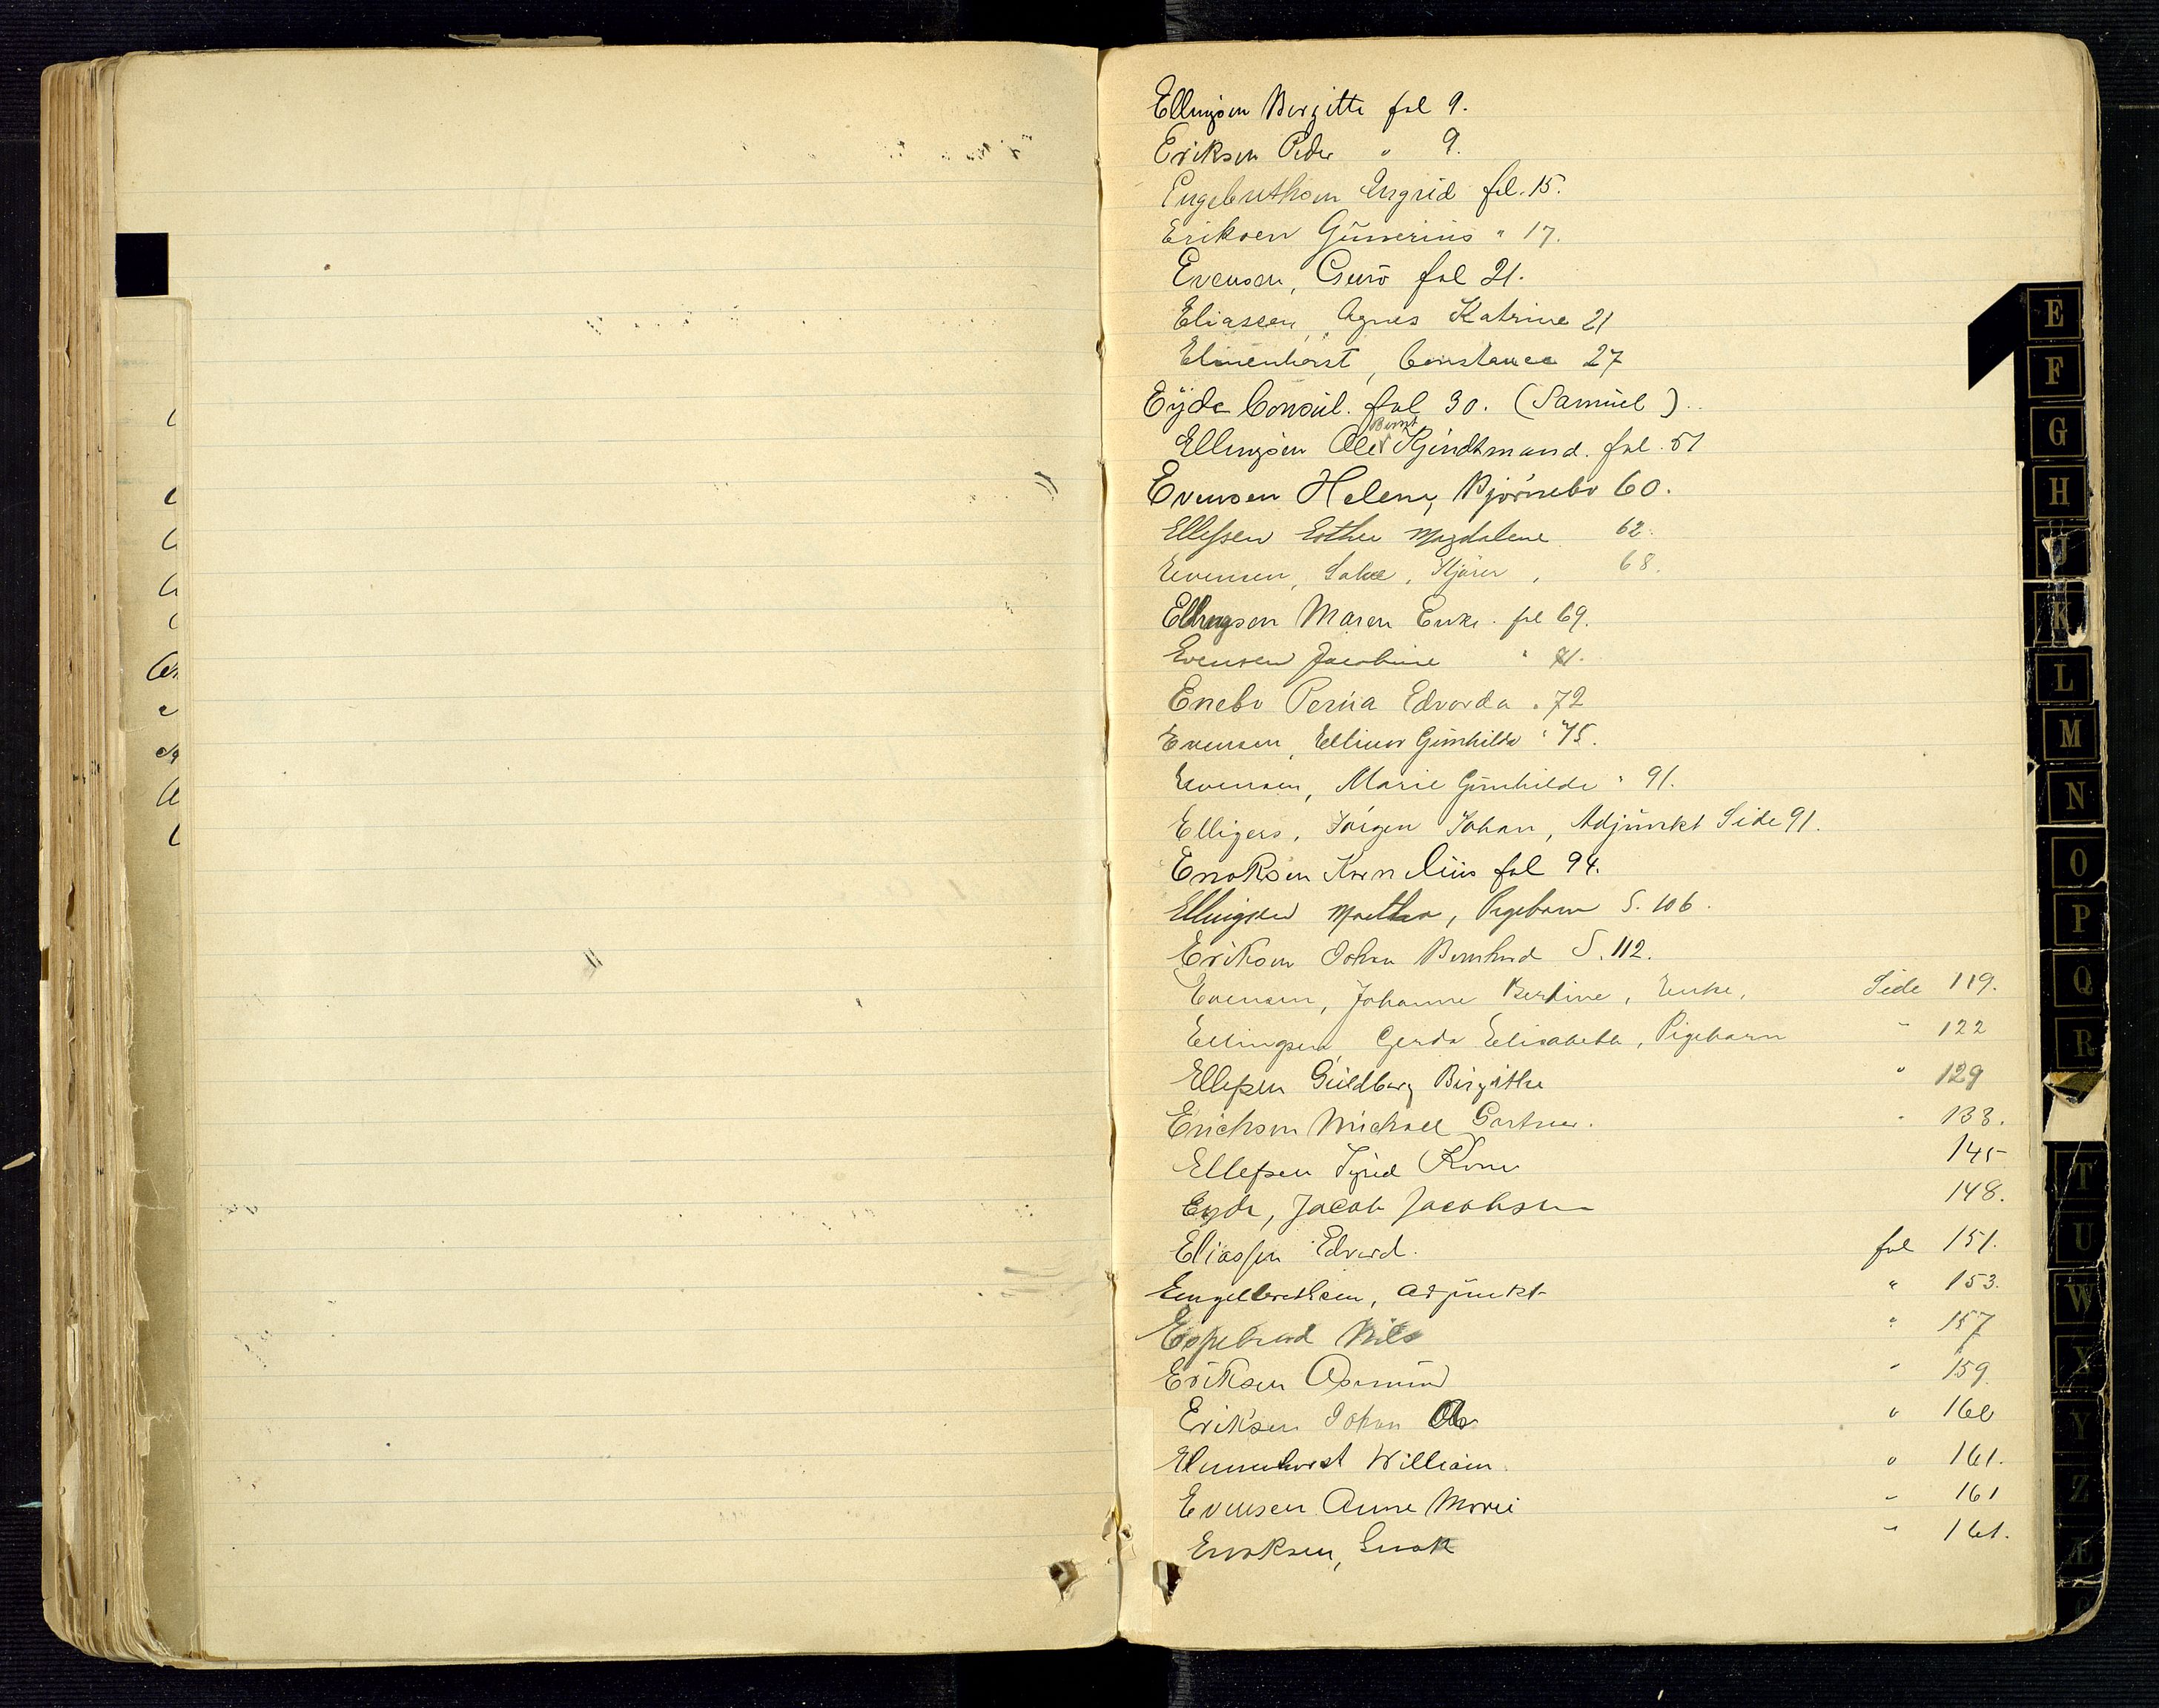 Ellingsen Birgitte fol 9.
Eriksen Peder " 9.
Engebrethsen Ingrid fol. 15.
Eriksen Gunerius " 17.
Evensen, Guro fol 21.
Eliassen, Agnes Katrine 21
Elmenhorst, Constance 27
Eyde Consul. fol 30. (Samuel)
Ellingsen Ole Bernt Kjendtmand. fol. 51
Evensen Helene, Bjørnebo 60.
Ellefsen Esther Magdalene 62.
Evensen, Salve, Skjører, 68.
Ellingsen Maren Enke. fol 69.
Evensen Jacobine " 71.
Enebo Petrea Edvarda " 72
Evensen, Ellinor Gunhilda " 75.
Evensen, Marie Gunhilde " 91.
Elligers, Jørgen Johan, Adjunkt Side 91.
Enoksen Kornelius fol 94.
Ellingsen Martha, Pigebarn S. 106.
Eriksen Johan Bernhard S. 112.
Evensen, Johanne Bertine, Enke, Side 119.
Ellingsen Gerda Elisabeth, Pigebarn " 122
Ellefsen Guldborg Birgithe " 129
Erichsen Michael Gartner. " 133.
Ellefsen Syred Kone 145
Eyde, Jacob Jacobsen 148.
Eliassen Edvard. fol 151.
Engelbrethsen, Adjunkt " 153.
Espeland Nils " 157
Eriksen Asmund " 159
Eriksen Johan " 160
Elmenhorst William. " 161.
Evensen Anne Marie " 161
Enoksen, Enok " 161.
E
F
G
H
J
K
L
M
N
O
P
Q
R
T
U
W
X
Y
Z
Æ